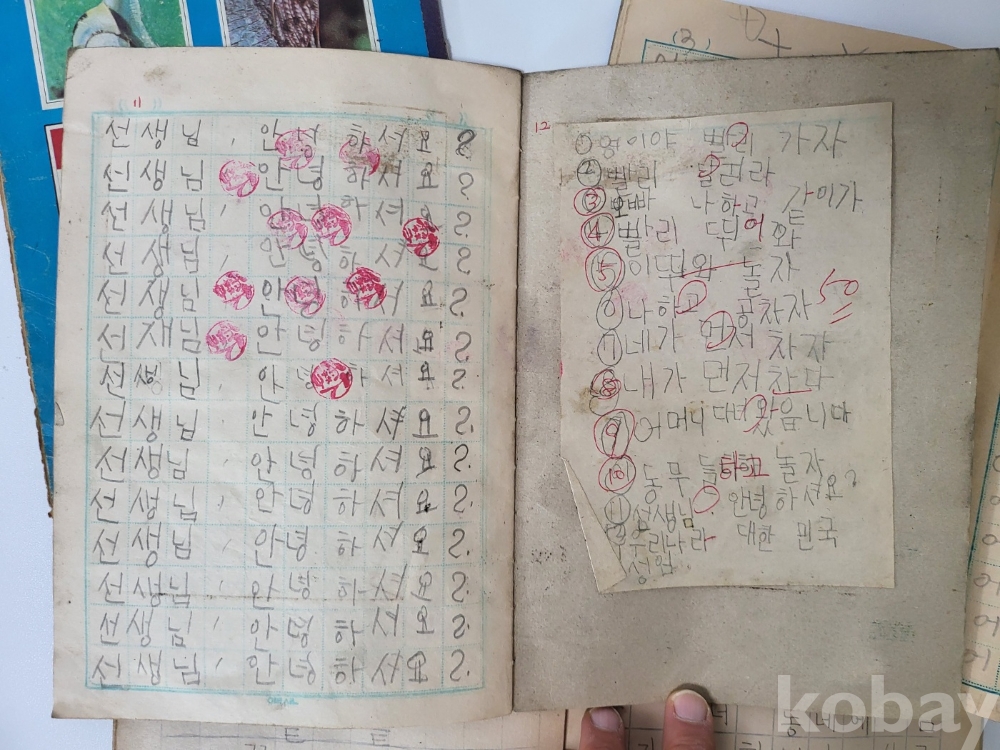 11
선생님, 안녕 하셔요?
선생님, 안녕 하셔요?
선생님, 안녕 하셔요?
선생님, 안녕 하셔요?
선생님, 안녕 하셔요?
선재님, 안녕 하셔요?
선셍님, 안녕 하셔요?
선생님, 안녕 하셔요?
선생님, 안녕 하셔요?
선생님, 안녕 하셔요?
선생님, 안녕 하셔요?
선생님, 안녕 하셔요?
선생님, 안녕 하셔요?
선생님, 안녕 하셔요?
12
① 영이야 빠리 가자
② 빨리 달려라
③ 오빠 나하고 가이가
④ 빨리 뛰어 와
⑤ 놀자
⑥ 나하고 공차자
50
⑦ 네가 먼저 차자
⑧ 내가 먼저 찬다
⑨ 어머니 다녀왔읍니다
⑩ 동무 들하고 놀자
⑪ 선생님 안녕하셔요?
우리나라 대한 민국
(3)
동네에
kobay